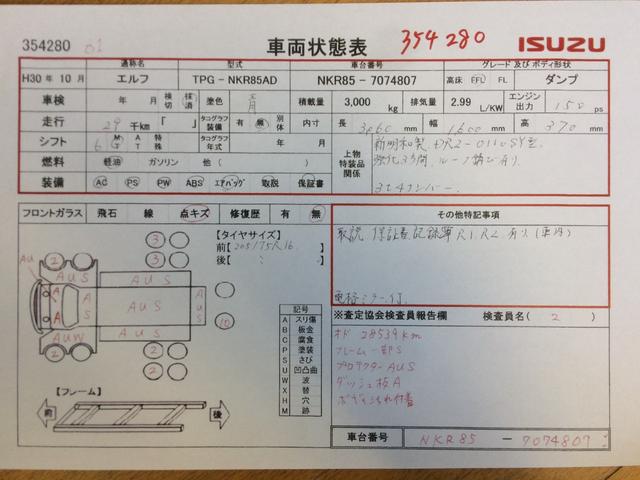 354280 01 車両状態表 354280 ISUZU
通称名 型式 車台番号 グレード 及び ボディ形状
H30 年 10 月 エルフ TPG - NKR85AD NKR85 - 7074807 高床 FFL FL ダンプ
車検 年 月 検切 抹消 塗色 青 積載量 3,000 kg 排気量 2.99 L/KW エンジン出力 150 ps
走行 29 千km 「 」 タコグラフ装備 有 無 別体 内寸 長 3060 mm 幅 1600 mm 高 370 mm
シフト 6 MT AT 特殊 タコグラフ年式 年 月 上物特装品関係 新明和製 DR2-0110SY型
燃料 軽油 ガソリン 他 ( ) 強化3方開
装備 AC PS PW ABS エアバッグ 取説 保証書 3t4ナンバー
フロントガラス 飛石 線 点キズ 修復歴 有 無 その他特記事項
【タイヤサイズ】
前【 205/75R16 】
後【 : 】
取説 保証書 記録簿 R1.R2 有り(車内)
電格ミラー付
3
2 AUS AU
AUS AUS AUS
A A 10
AUW AUS
2 2 2
記号
A スリ傷
B 板金
C 腐食
P 塗装
S さび
U 凹凸曲
W 波
X 替
H 穴
M 跡
※査定協会検査員報告欄 検査員名( 2 )
オド 28539km
フレーム一部S
プロテクターAUS
ダッシュ板A
ボディよごれ付着
【フレーム】
前 後
車台番号 NKR85 - 7074807